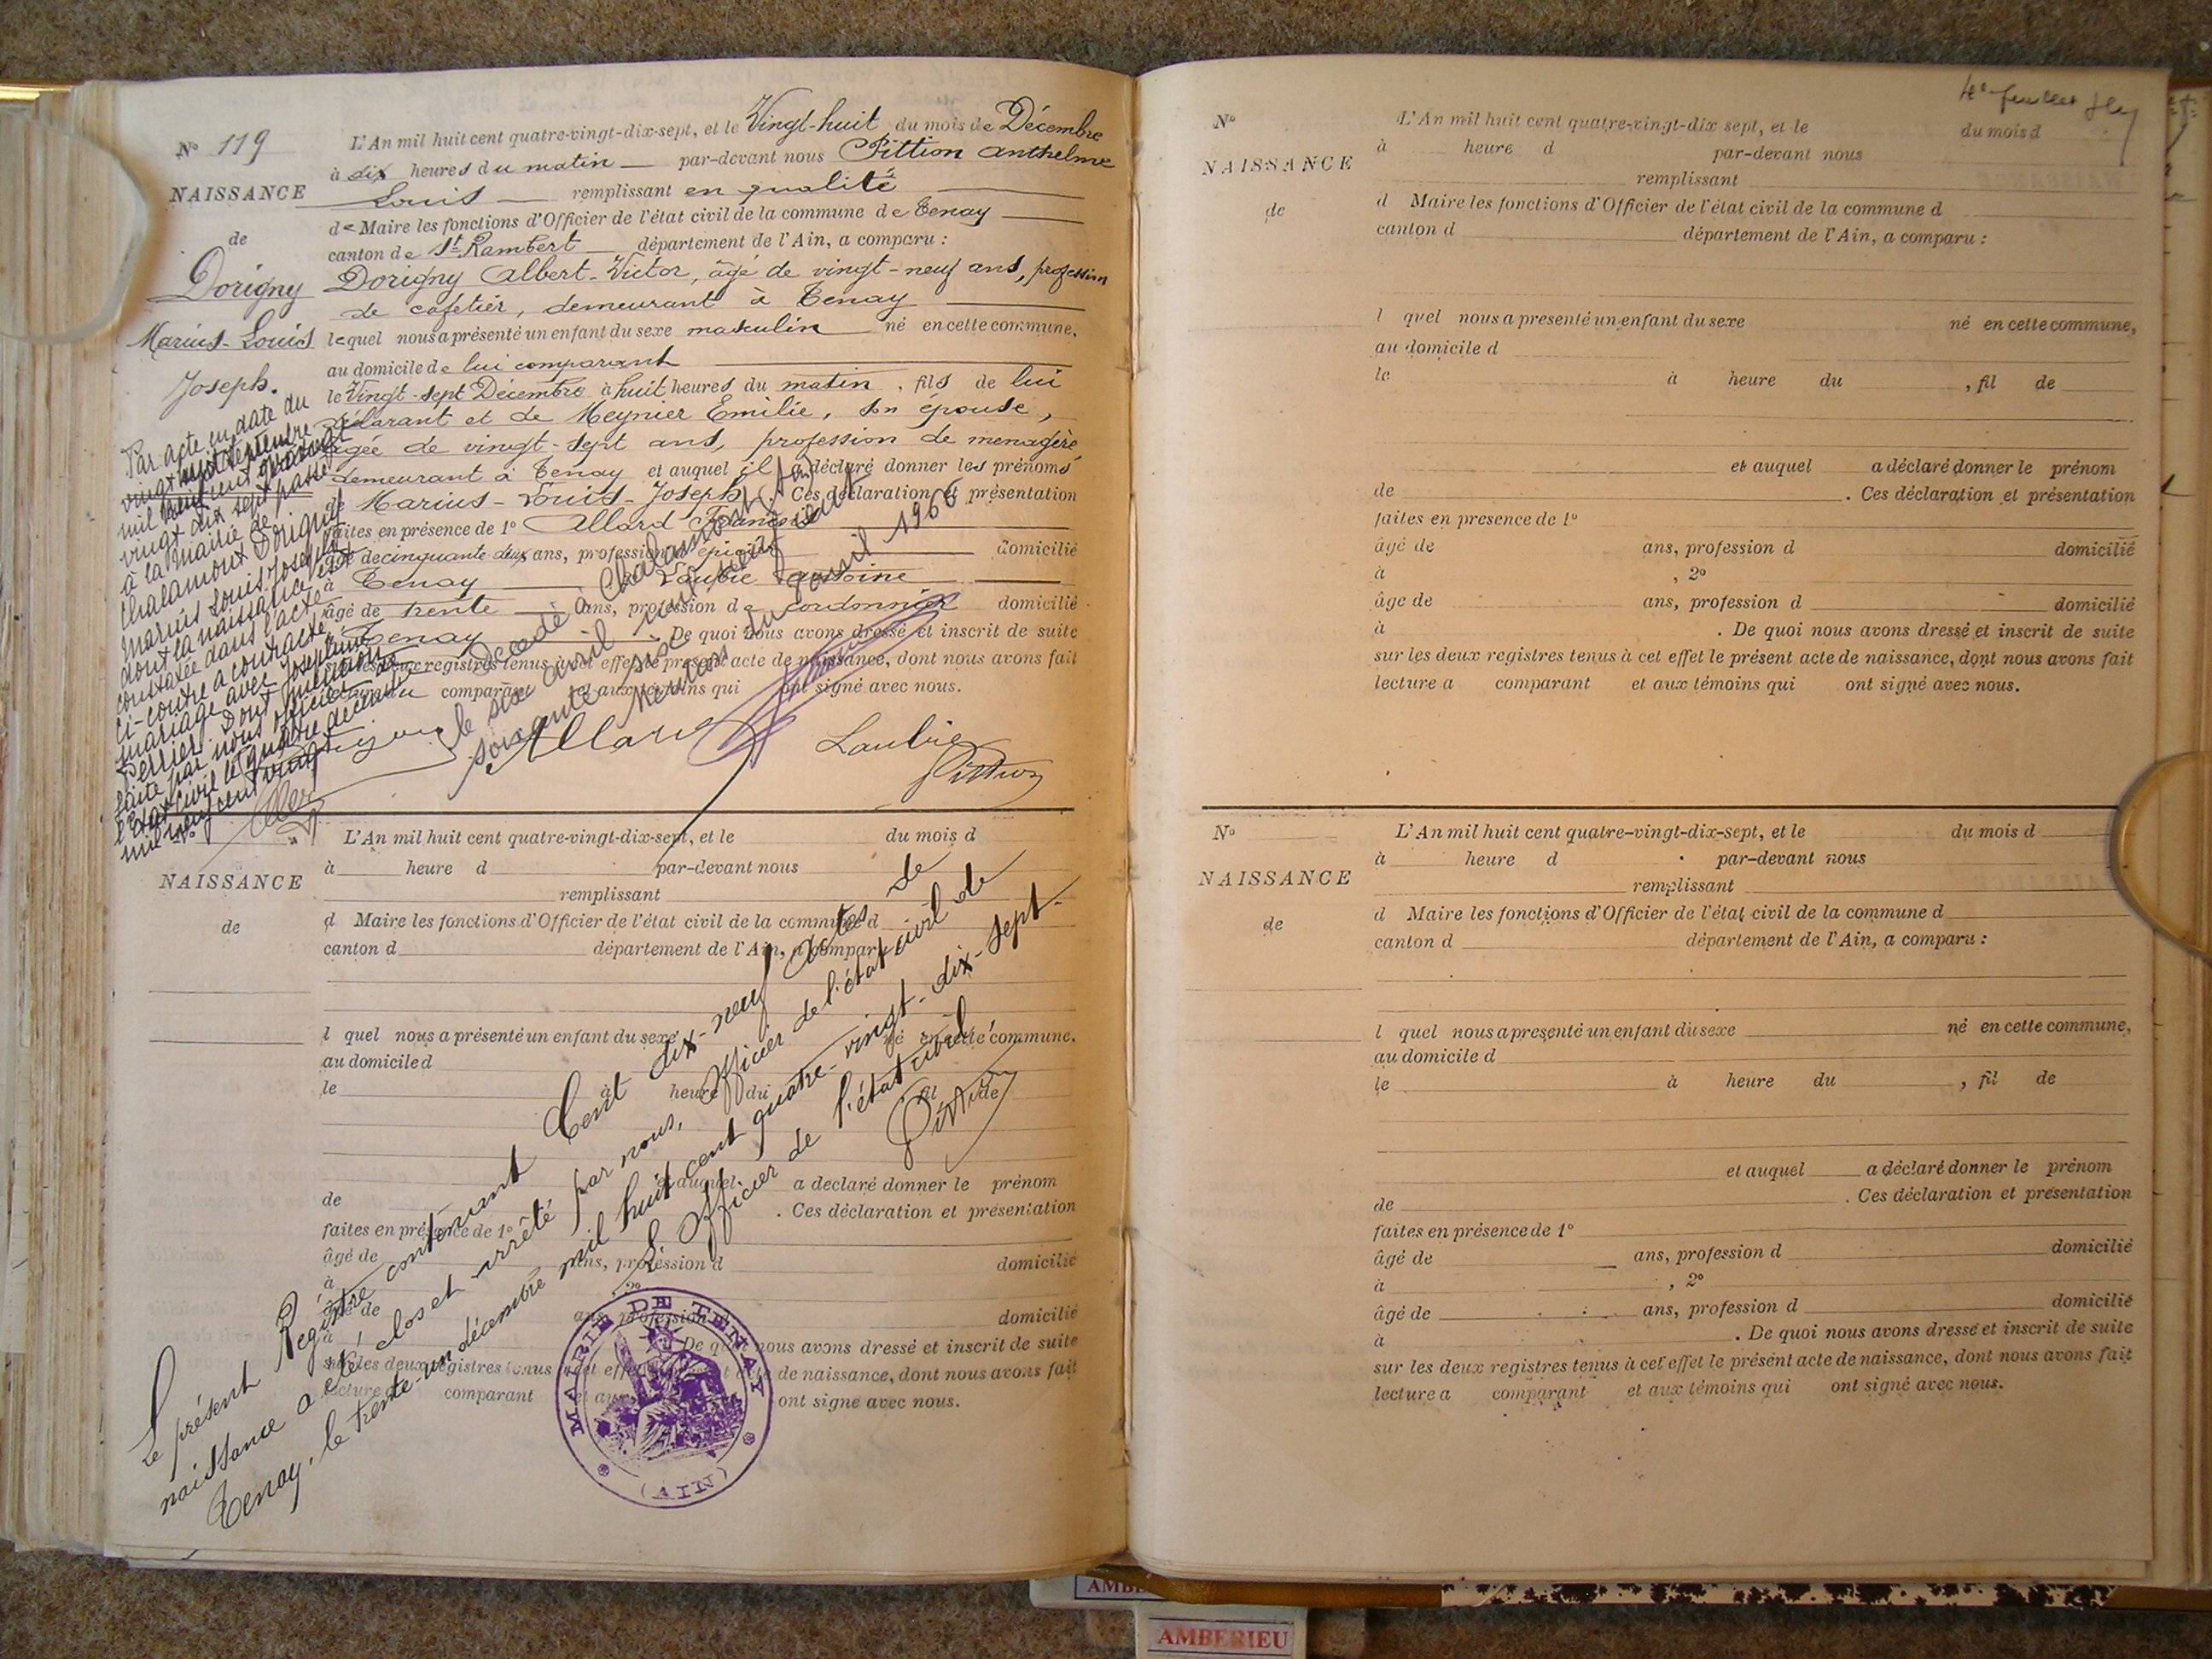 N° 119
NAISSANCE
de
Dorigny
Marius-Louis
Joseph.
L'An mil huit cent quatre-vingt-dix-sept, et le Vingt-huit du mois de Décembre
à dix heures du matin par-devant nous Pittion Anthelme
Louis remplissant en qualité
de Maire les fonctions d'Officier de l'état civil de la commune de Tenay
canton de St Rambert département de l'Ain, a comparu :
Dorigny Albert-Victor, âgé de vingt-neuf ans, profession
de cafetier, demeurant à Tenay
lequel nous a présenté un enfant du sexe masculin né en cette commune,
au domicile de lui comparant
le Vingt-sept Décembre à huit heures du matin, fils de lui
déclarant et de Meynier Emilie, son épouse,
âgée de vingt-sept ans, profession de menagère
demeurant à Tenay et auquel il a déclaré donner les prénoms
de Marius-Louis-Joseph. Ces déclaration et présentation
faites en présence de 1° Allard François
âgé de cinquante deux ans, profession d'épicier domicilié
à Tenay 2° Laubie Antoine
âgé de trente ans, profession de cordonnier domicilié
à Tenay De quoi nous avons dressé et inscrit de suite
sur les deux registres tenus à cet effet le présent acte de naissance, dont nous avons fait
lecture au comparant et aux témoins qui ont signé avec nous.
Allard
Laubie
Pittion
Par acte en date du
vingt huit septembre
mil
vingt dix sept passé
à la Mairie de
Chalamont Dorigny
Marius Louis Joseph
dont la naissance est
constatée dans l'acte
ci-contre a contracté
mariage avec Joséphine
Perrier. Dont mention
faite par nous officier de
l'Etat Civil le quatre décembre
mil neuf cent vingt
Décédé à Chalamont (Ain)
le six avril mil neuf cent
soixante six
Mention du avril 1966
N°
NAISSANCE
de
L'An mil huit cent quatre-vingt-dix-sept, et le du mois d
à heure d par-devant nous
remplissant
d Maire les fonctions d'Officier de l'état civil de la commune d
canton d département de l'Ain, a comparu :
l quel nous a présenté un enfant du sexe né en cette commune.
au domicile d
le à heure du fil de
et auquel a declaré donner le prénom
de . Ces déclaration et présentation
faites en présence de 1°
âgé de ans, profession d domicilié
à 2°
âgé de ans, profession d domicilié
à De quoi nous avons dressé et inscrit de suite
sur les deux registres tenus à cet effet le présent acte de naissance, dont nous avons fait
lecture a comparant et aux ont signé avec nous.
Le présent Registre contenant Cent dix-neuf Actes de
naissance a été clos et arrêté par nous, Officier de l'état civil de
Tenay, le trente-un décembre mil huit cent quatre-vingt-dix-sept.
L'Officier de l'état civil
Pittion
MAIRIE DE TENAY
(AIN)
N°
NAISSANCE
de
L'An mil huit cent quatre-vingt-dix sept, et le du mois d
à heure d par-devant nous
remplissant
d Maire les fonctions d'Officier de l'état civil de la commune d
canton d département de l'Ain, a comparu :
l quel nous a presenté un enfant du sexe né en cette commune,
au domicile d
le à heure du , fil de
et auquel a déclaré donner le prénom
de . Ces déclaration et présentation
faites en presence de 1°
âgé de ans, profession d domicilié
à , 2°
âge de ans, profession d domicilié
à . De quoi nous avons dressé et inscrit de suite
sur les deux registres tenus à cet effet le présent acte de naissance, dont nous avons fait
lecture a comparant et aux témoins qui ont signé avec nous.
N°
NAISSANCE
de
L'An mil huit cent quatre-vingt-dix-sept, et le du mois d
à heure d par-devant nous
remplissant
d Maire les fonctions d'Officier de l'état civil de la commune d
canton d département de l'Ain, a comparu :
l quel nous a presenté un enfant du sexe né en cette commune,
au domicile d
le à heure du , fil de
et auquel a déclaré donner le prénom
de . Ces déclaration et présentation
faites en présence de 1°
âgé de ans, profession d domicilié
à , 2°
âgé de ans, profession d domicilié
à . De quoi nous avons dressé et inscrit de suite
sur les deux registres tenus à cet effet le présent acte de naissance, dont nous avons fait
lecture a comparant et aux témoins qui ont signé avec nous.
AMBERIEU